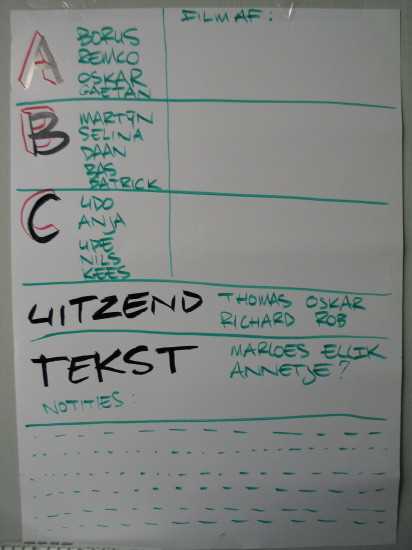 FILM AF:
A
BORUS
REMCO
OSKAR
GAETAN
B
MARTIJN
SELINA
DAAN
BAS
BATRICK
C
UDO
ANJA
LIPE
NILS
KEES
UITZEND
THOMAS OSKAR
RICHARD ROB
TEKST
MARLOES ELLIK
ANNETJE?
NOTITIES: